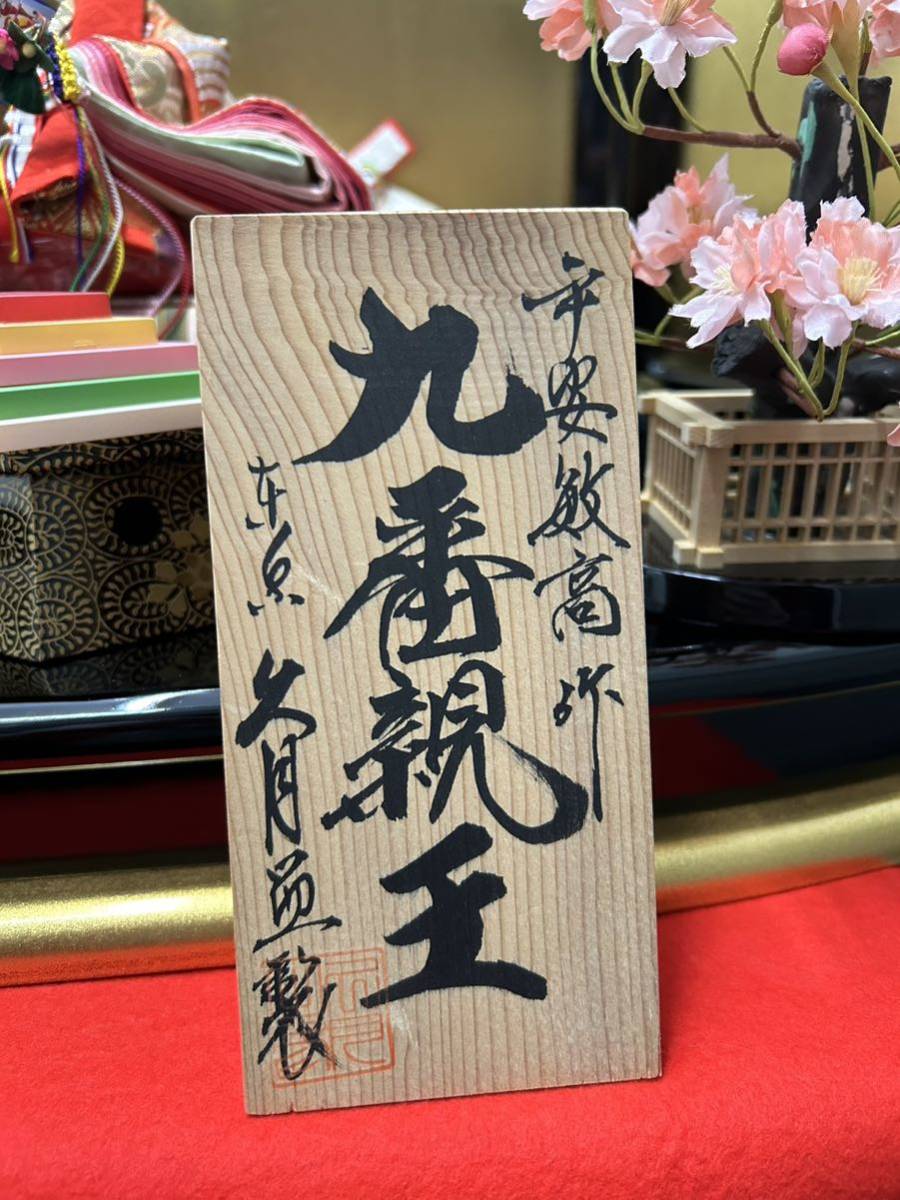 平安敏高作
九番親王
東京久月謹製